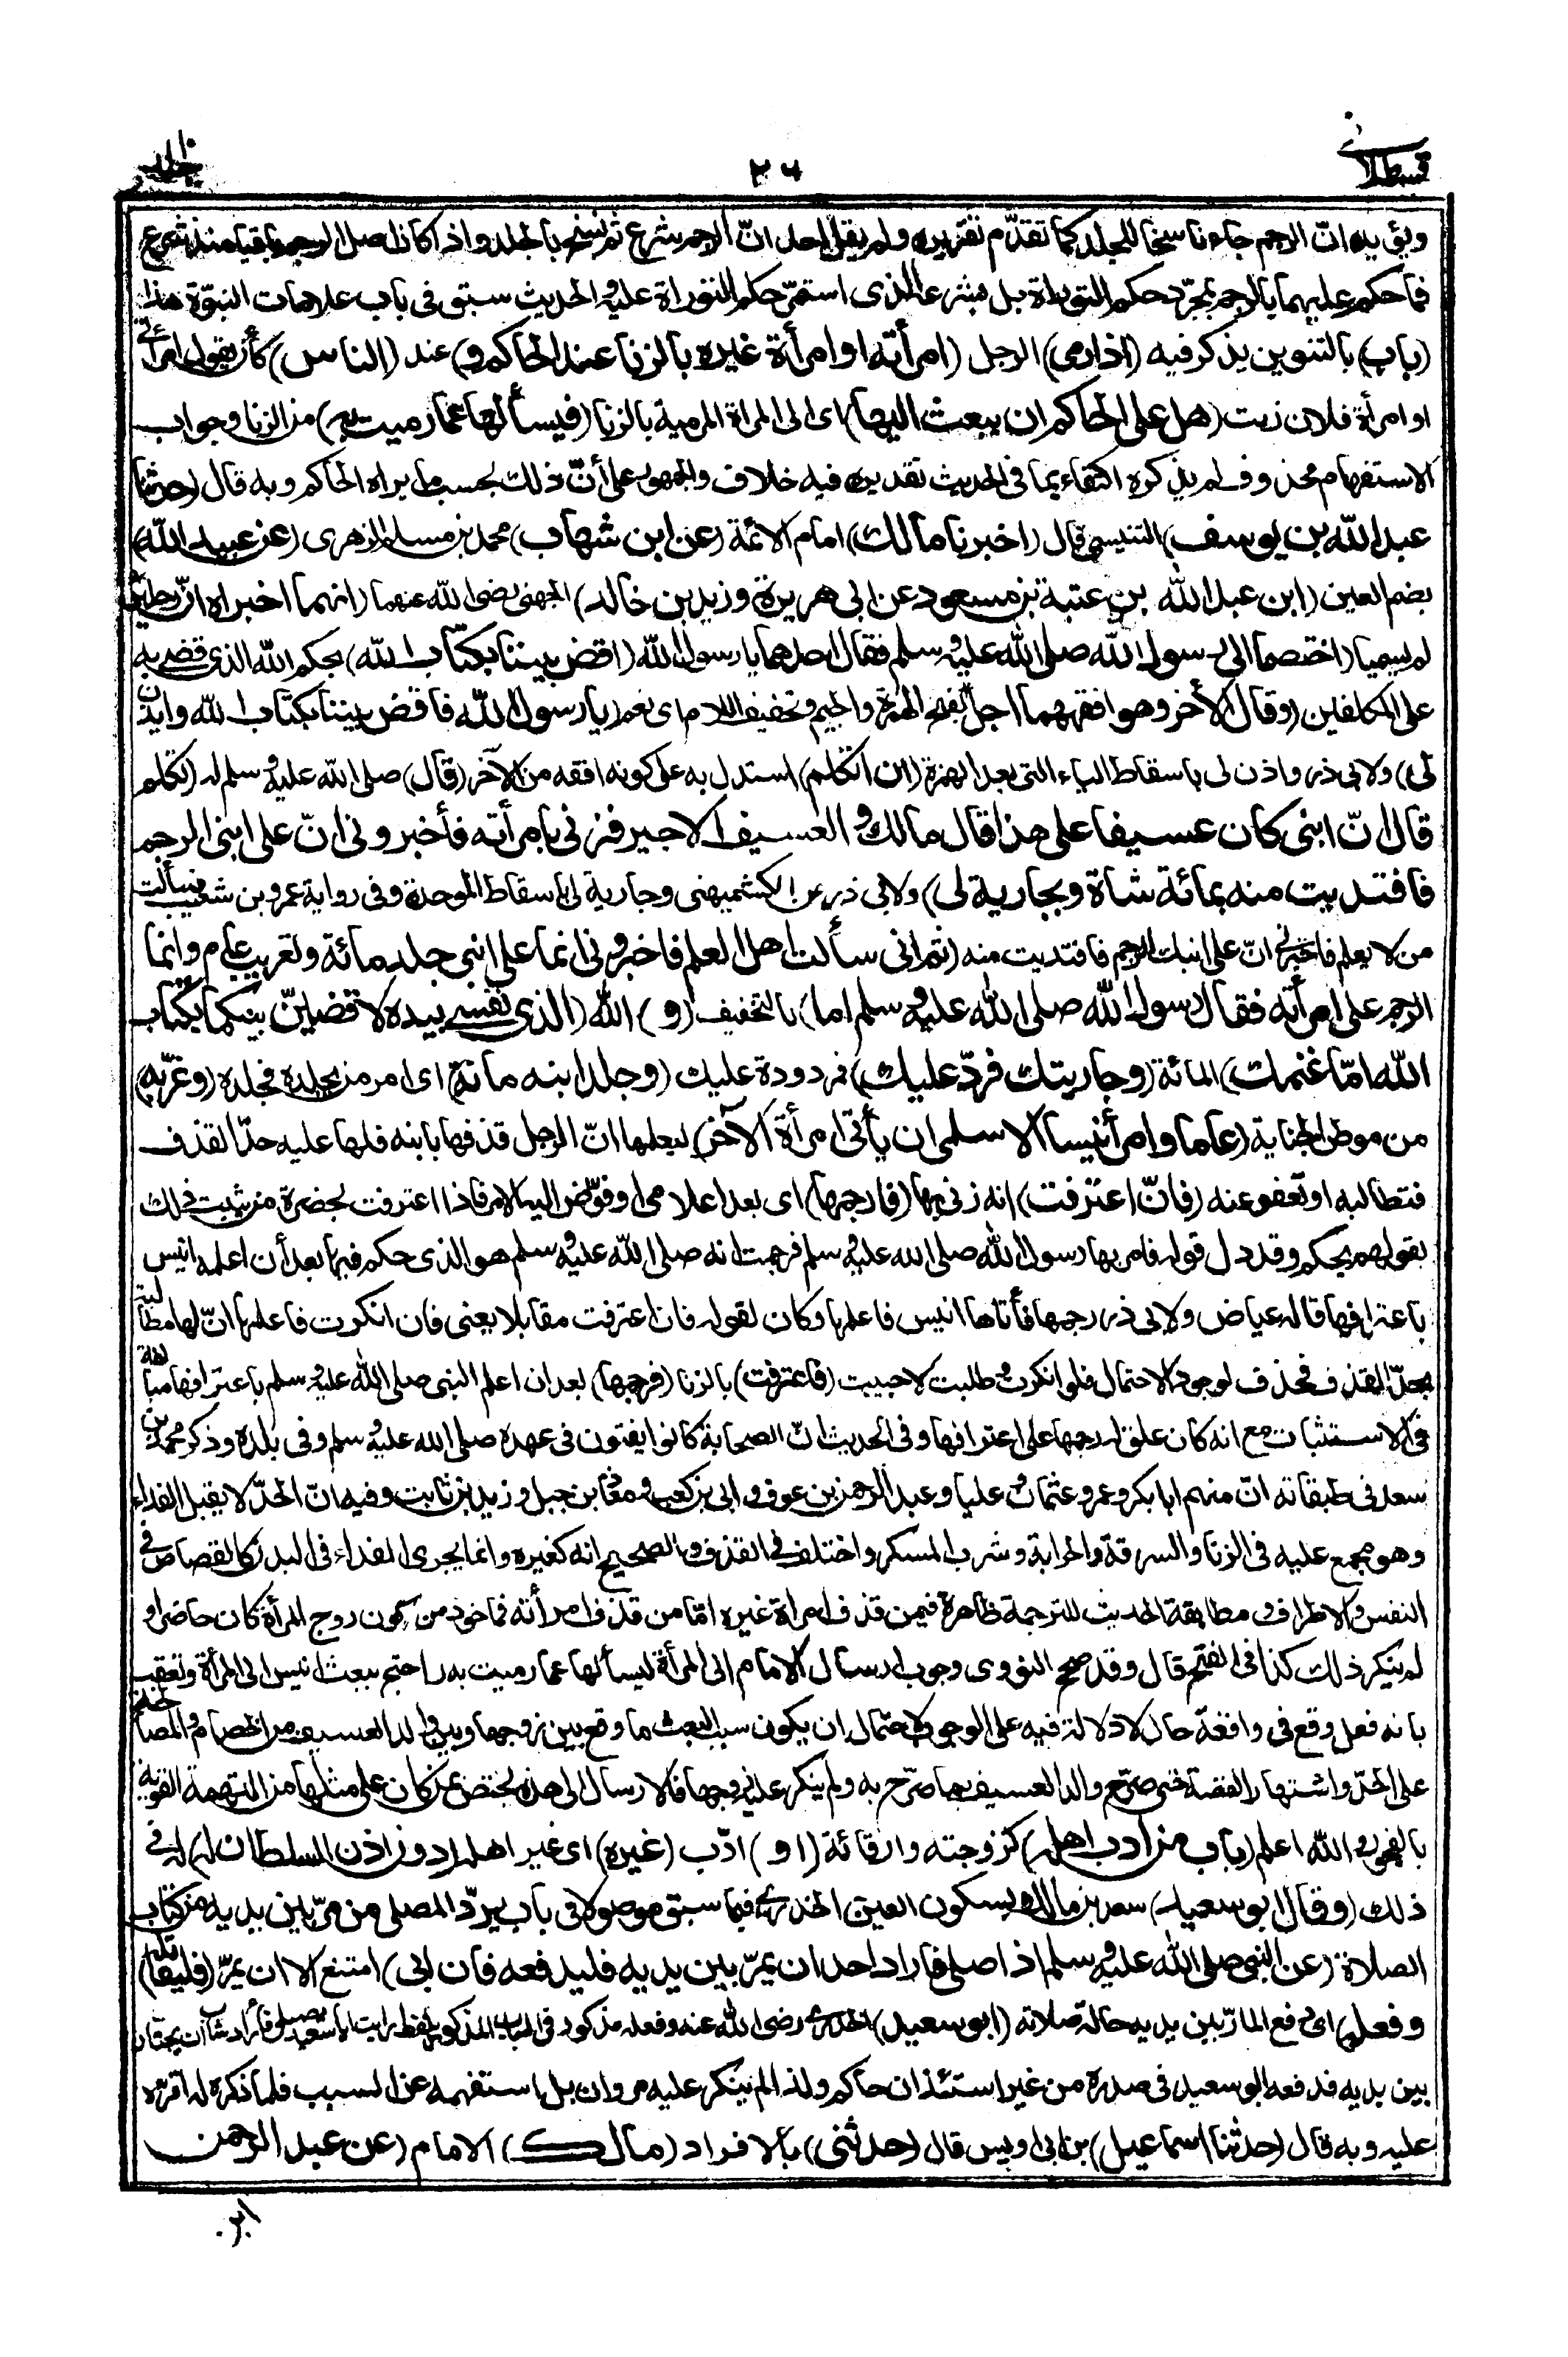 قسطلانی
٣٦
جلد
ويؤيده انّ الرجم جاء ناسخا للجلد كما تقدّم تقريره ولم يقل احد انّ الرجم شرع ثم نسخ بالجلد واذا كان اصل الرجم باقيا منذ شرع
فما حكم عليهما بالرجم بمجرّد حكم التوراة بل بشرعه الذى استمرّ حكم التوراة عليه والحديث سبق فى باب علامات النبوّة هذا
(باب) بالتنوين يذكر فيه (اذا رمى) الرجل (امرأته او امرأة غيره بالزنا عند الحاكم و) عند (الناس) كأن يقول امرأتى
او امرأة فلان زنت (هل على الحاكم ان يبعث اليها) اى الى المرأة المرمية بالزنا (فيسألها عما رميت به) من الزنا وجواب
الاستفهام محذوف لم يذكره اكتفاء بما فى الحديث تقديره فيه خلاف والجمهور على أنّ ذلك بحسب ما يراه الحاكم وبه قال (حدثنا
عبد الله بن يوسف) التنيسى قال (اخبرنا مالك) امام الائمة (عن ابن شهاب) محمد بن مسلم الزهرى (عن عبيد الله)
بضم العين (ابن عبد الله بن عتبة بن مسعود عن ابى هريرة وزيد بن خالد) الجهنى رضى الله عنهما (انهما اخبراه انّ رجلين)
لم يسميا (اختصما الى رسول الله صلى الله عليه وسلم فقال احدهما يا رسول الله (اقض بيننا بكتاب الله) بحكم الله الذى قضى به
على المكلفين (وقال الآخر وهو افقههما اجل) بفتح الهمزة والجيم وتخفيف اللام اى نعم (يا رسول الله فاقض بيننا بكتاب الله وايذن
لى) ولابى ذر واذن لى باسقاط الياء التى بعد الهمزة (ان اتكلم) استدل به على كونه افقه من الآخر (قال) صلى الله عليه وسلم له (تكلم
قال انّ ابنى كان عسيفا على هذا قال مالك والعسيف الاجير فزنى بامرأته فأخبرونى انّ على ابنى الرجم
فافتديت منه بمائة شاة وبجارية لى) ولابى ذر عن الكشميهنى وجارية لى باسقاط الموحدة وفى رواية عمرو بن شعيب فسألت
من لا يعلم فاخبرنى انّ على ابنك الرجم فافتديت منه (ثم انى سألت اهل العلم فاخبرونى انما على ابنى جلد مائة وتغريب عام وانما
الرجم على امرأته فقال رسول الله صلى الله عليه وسلم اما) بالتخفيف (و) الله (الذى نفسى بيده لاقضينّ بينكما بكتاب
الله امّا غنمك) المائة (وجاريتك فردّ عليك) فردودة عليك (وجلد ابنه مائة) اى امر من يجلده فجلده (وغرّبه)
من موطن الجناية (عاما وامر أنيسا الاسلمى ان يأتى امرأة الآخر) ليعلمها انّ الرجل قذفها بابنه فلها عليه حدّ القذف
فتطالبه او تعفو عنه (فانّ اعترفت) انه زنى بها (فارجمها) اى بعد اعلامى او فوّض اليه الامر فاذا اعترفت بحضرة من يثبت ذلك
بقولهم يحكم وقد دل قوله فامر بها رسول الله صلى الله عليه وسلم فرجمت انه صلى الله عليه وسلم هو الذى حكم فيها بعد أن اعلمه انيس
باعترافها قاله عياض ولابى ذر رجمها فأتاها انيس فاعلمها وكان لقوله فان اعترفت مقابلا يعنى فان انكرت فاعلمها انّ لها مطالبته
بحدّ القذف فحذف لوجود الاحتمال فلو انكرت وطلبت لاجيبت (فاعترفت) بالزنا (فرجمها) بعد ان اعلم النبى صلى الله عليه وسلم باعترافها مبالغة
فى الاستثبات مع انه كان علق له رجمها على اعترافها وفى الحديث انّ الصحابة كانوا يفتون فى عهده صلى الله عليه وسلم وفى بلده وذكر محمد بن
سعد فى طبقاته انّ منهم ابا بكر وعمر وعثمان وعليا وعبد الرحمن بن عوف وابى بن كعب ومعاذ بن جبل وزيد بن ثابت وفيه انّ الحدّ لا يقبل الفداء
وهو مجمع عليه فى الزنا والسرقة والحرابة وشرب المسكر واختلف فى القذف والصحيح انه كغيره وانما يجرى الفداء فى البدن كالقصاص فى
النفس والاطراف ومطابقة الحديث للترجمة ظاهرة فيمن قذف امرأة غيره امّا من قذف امرأته فمأخوذ من كون زوج المرأة كان حاضرا و
لم ينكر ذلك كذا فى الفتح قال وقد صحح النووى وجوب ارسال الامام الى المرأة ليسألها عما رميت به واحتج ببعث انيس الى المرأة وتعقب
بانه فعل وقع فى واقعة حال لا دلالة فيه على الوجوب لاحتمال ان يكون سبب البعث ما وقع بين زوجها وبين والد العسيف من الخصام والمصالحة
على الحدّ واشتهار القصة حتى صرّح والد العسيف بما صرّح به ولم ينكر عليه زوجها فالارسال الى هذه يختص بمن كان على مثلها من التهمة القوية
بالفجور والله اعلم (باب من ادب اهله) كزوجته وارقائه (او) ادّب (غيره) اى غير اهله (دون اذن السلطان له) فى
ذلك (وقال ابو سعيد) سعد بن مالك بسكون العين الخدرى فيما سبق موصولا فى باب يردّ المصلى من مرّ بين يديه من كتاب
الصلاة (عن النبى صلى الله عليه وسلم اذا صلى فاراد احد ان يمرّ بين يديه فليدفعه فان ابى) امتنع الا ان يمرّ (فليقاتله)
وفعله) اى دفع المارّ بين يديه حالة صلاته (ابو سعيد) الخدرى رضى الله عنه وفعله مذكور فى الباب المذكور بلفظ رايت ابا سعيد يصلى فأراد شاب أن يجتاز
بين يديه فدفعه ابو سعيد فى صدره من غير استئذان حاكم ولذا لم ينكر عليه مروان بل استفهمه عن السبب فلما ذكره له اقرّه
عليه وبه قال (حدثنا اسماعيل) بن ابى اويس قال (حدثنى) بالافراد (مالك) الامام (عن عبد الرحمن
ابن